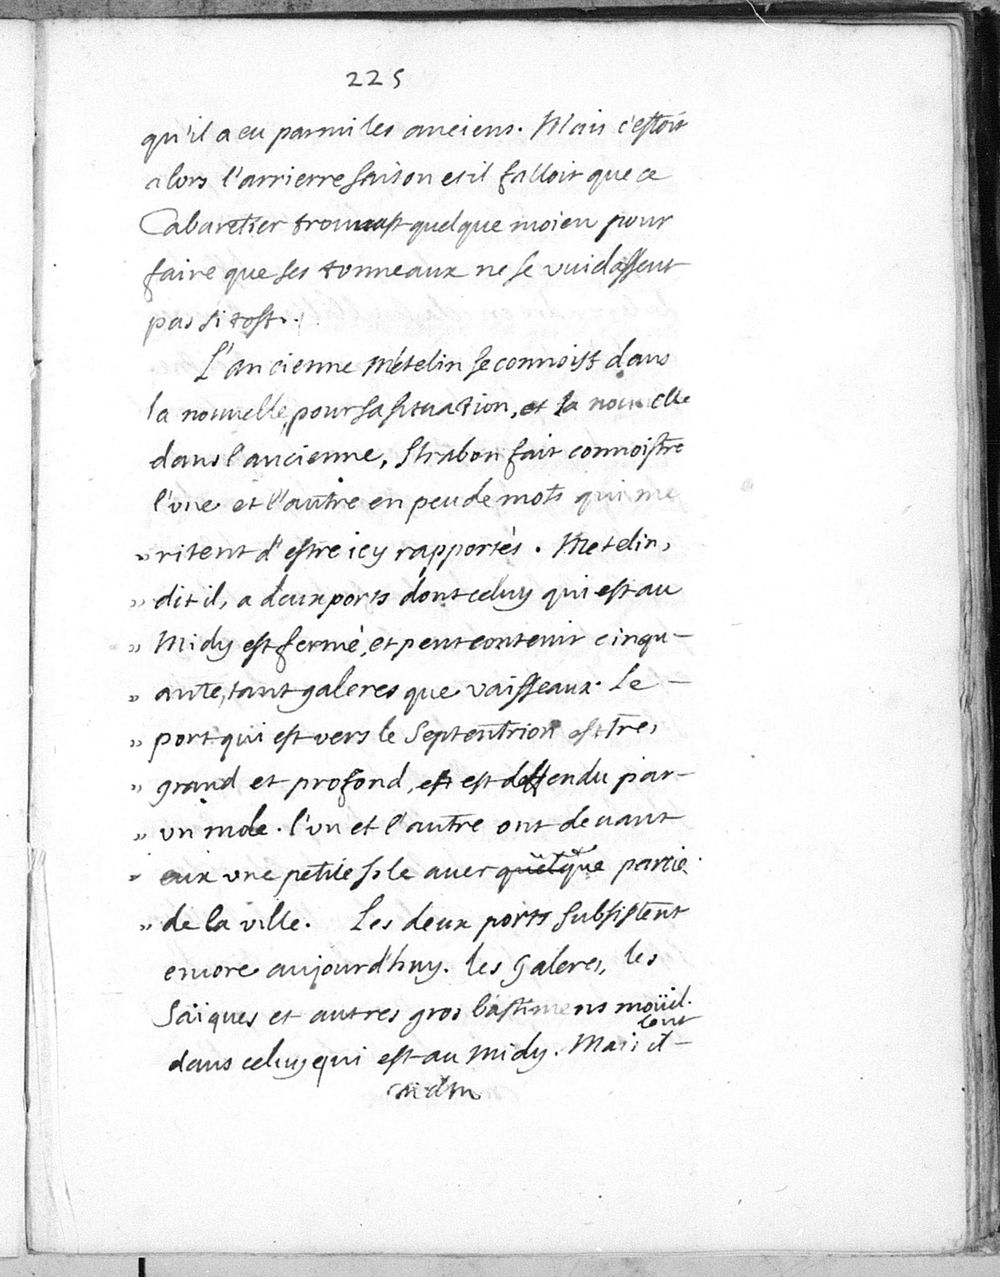 225
qu'il a eu parmi les anciens. Mais c'estoit
alors l'arrierre saison et il falloit que ce
Cabaretier trouvast quelque moien pour
faire que ses tonneaux ne se vuidassent
pas si tost.
L'ancienne Mételin se connoist dans
la nouvelle, pour sa situation, et la nouvelle
dans l'ancienne, Strabon fait connoistre
l'vne et l'autre en peu de mots qui me
" ritent d'estre icy rapportés. Metelin,
" dit il, a deux ports dont celuy qui est au
" Midy est fermé, et peut contenir cinqu-
" ante, tant galeres que vaisseaux. Le
" port qui est vers le Septentrion est tres
" grand et profond, et est deffendu par
" vn mole. l'vn et l'autre ont deuant
" eux vne petite Isle auec quelque partie
" de la ville. Les deux ports subsistent
encore aujourd'huy. les Galeres, les
Saïques et autres gros bâstimens moüil-
lent
dans celuy qui est au Midy. Mais il